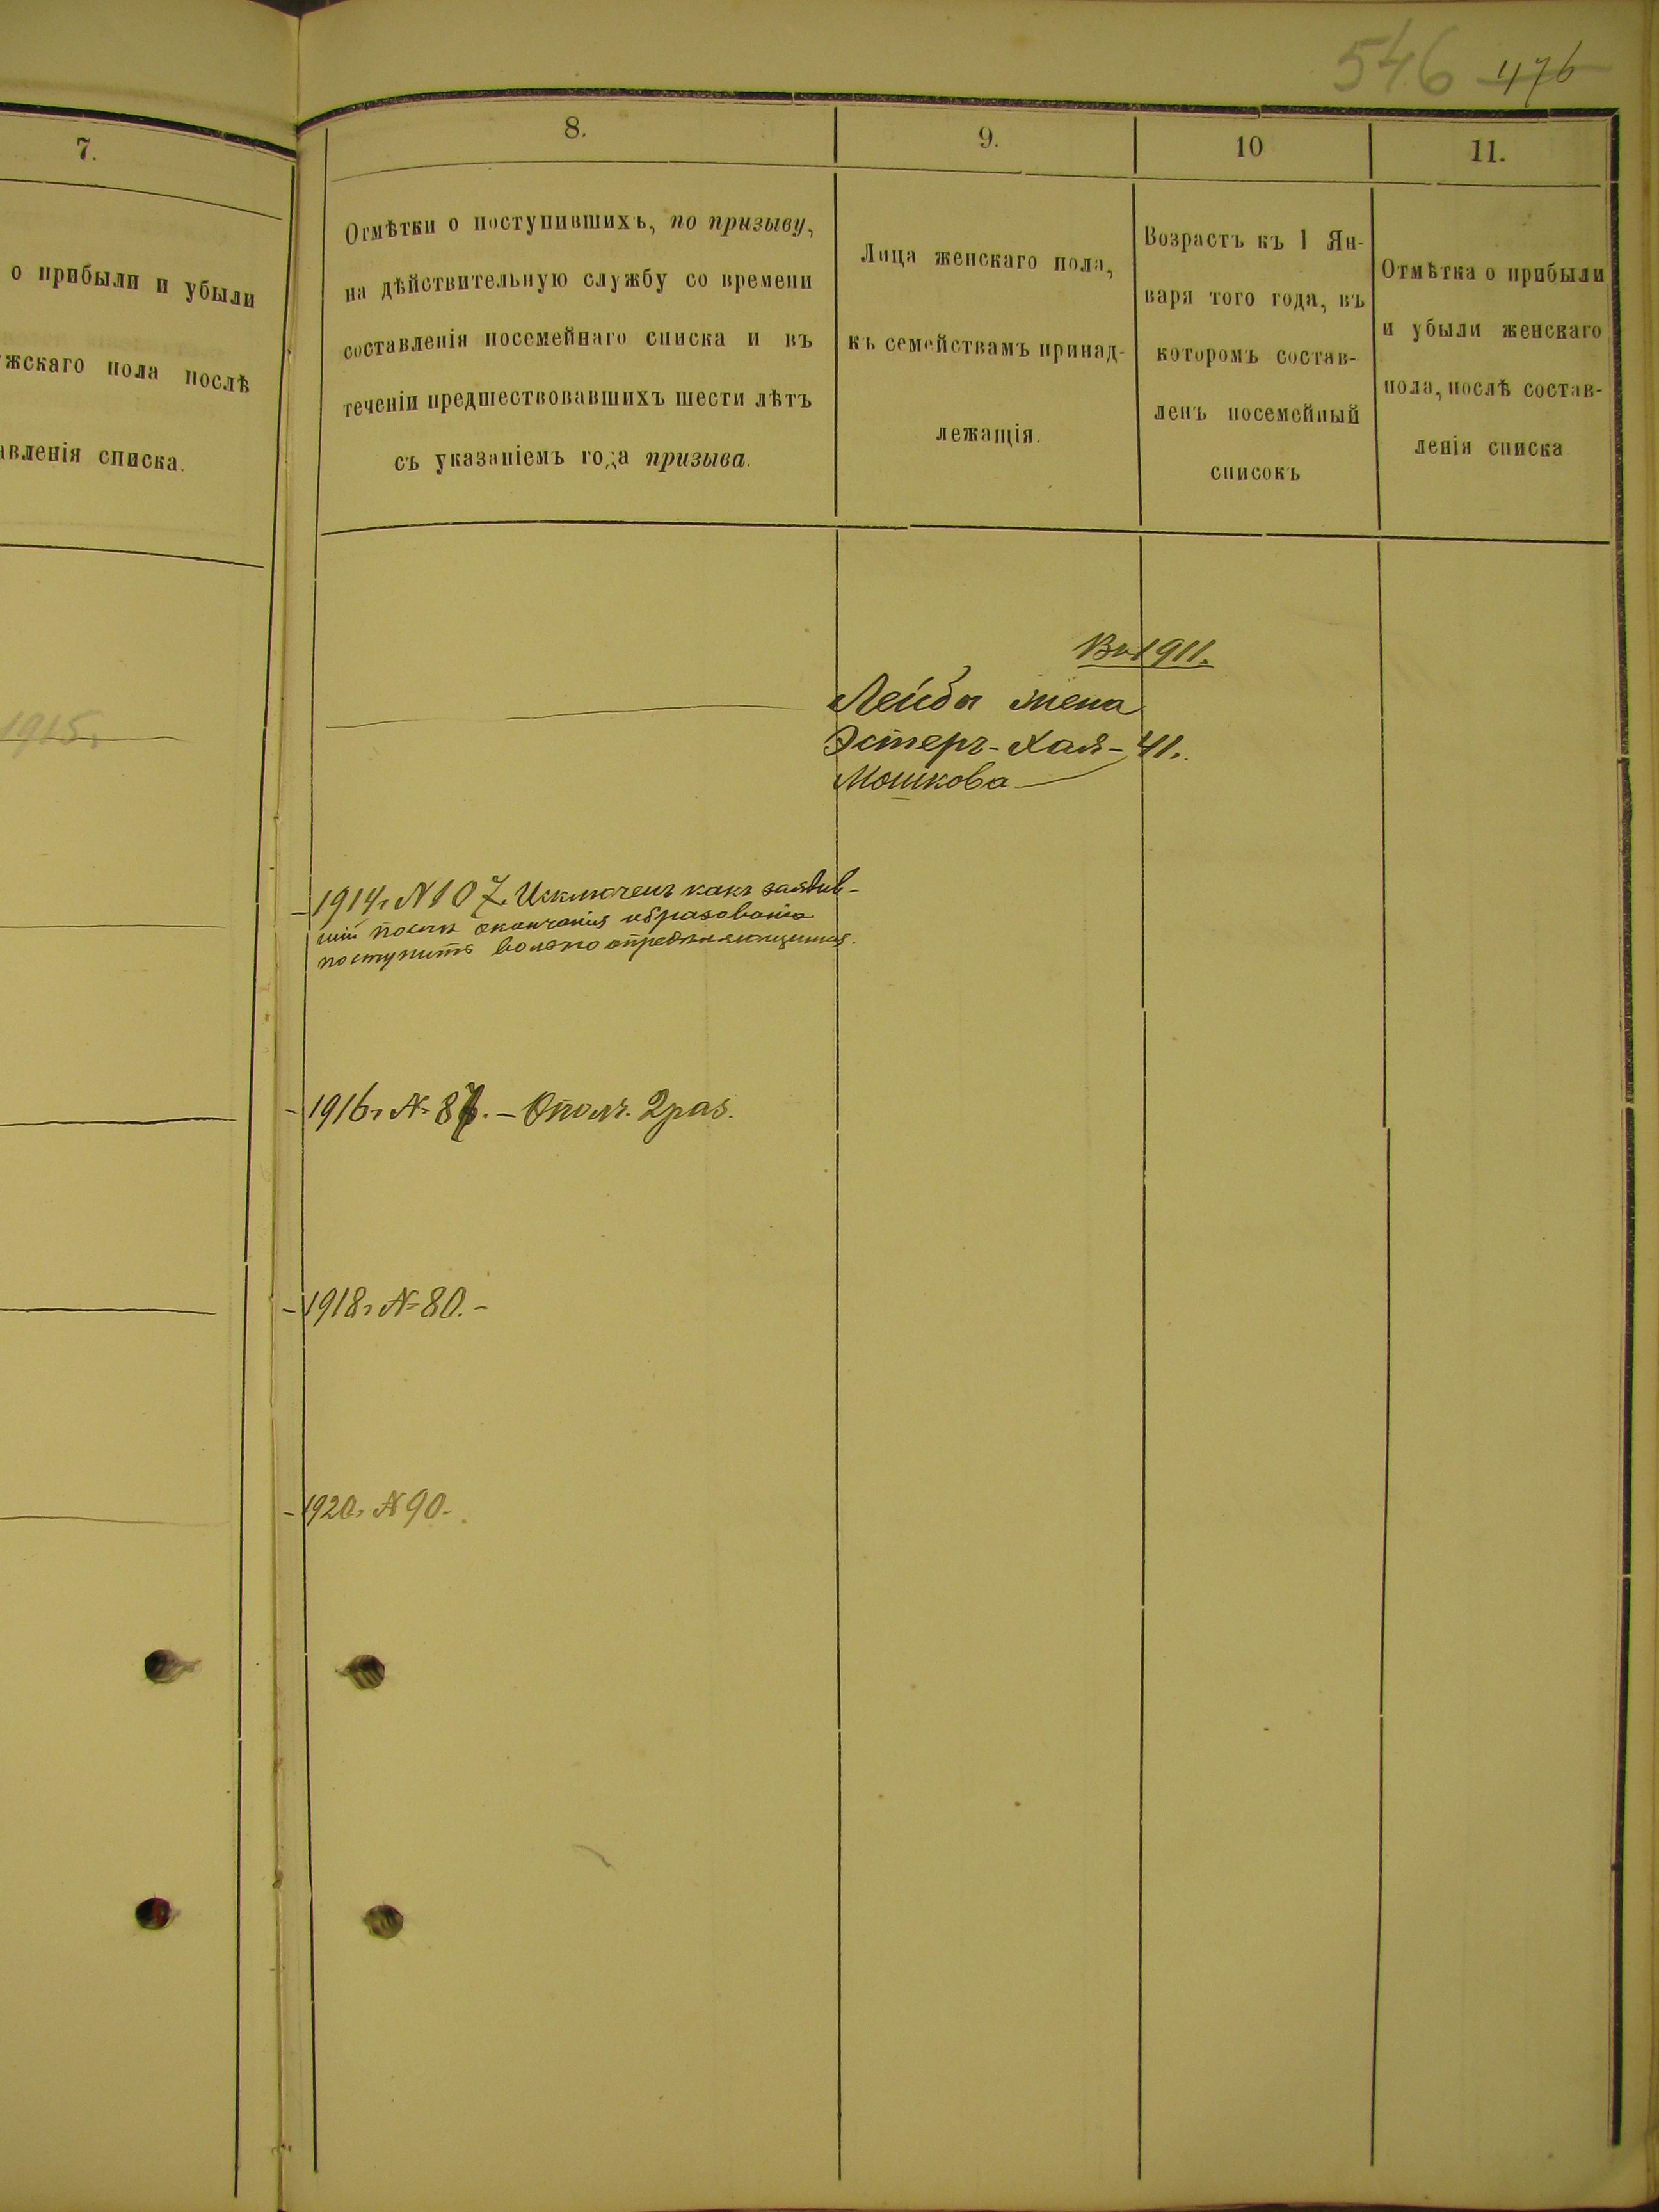 546 476
7.
о прибыли и убыли
жскаго пола послѣ
авленія списка.
1915г
8.
Отмѣтки о поступившихъ, по призыву,
на дѣйствительную службу со времени
составленія посемейнаго списка и въ
теченіи предшествовавшихъ шести лѣтъ
съ указаніемъ года призыва.
9.
Лица женскаго пола,
къ семействамъ принад-
лежащія.
10
Возрастъ къ 1 Ян-
варя того года, въ
которомъ состав-
ленъ посемейный
списокъ
11.
Отмѣтка о прибыли
и убыли женскаго
пола, послѣ состав-
ленія списка
Въ 1911.
Лейбы жена
Эстеръ-Хая - 41.
Мошкова
1914г. N 107. Исключенъ какъ заявив-
шій послѣ окончанія образованія
поступить вольно опредѣляющимся.
1916г. № 87. - Ополч. 2 раз.
1918г. № 80. -
1920г. № 90. -